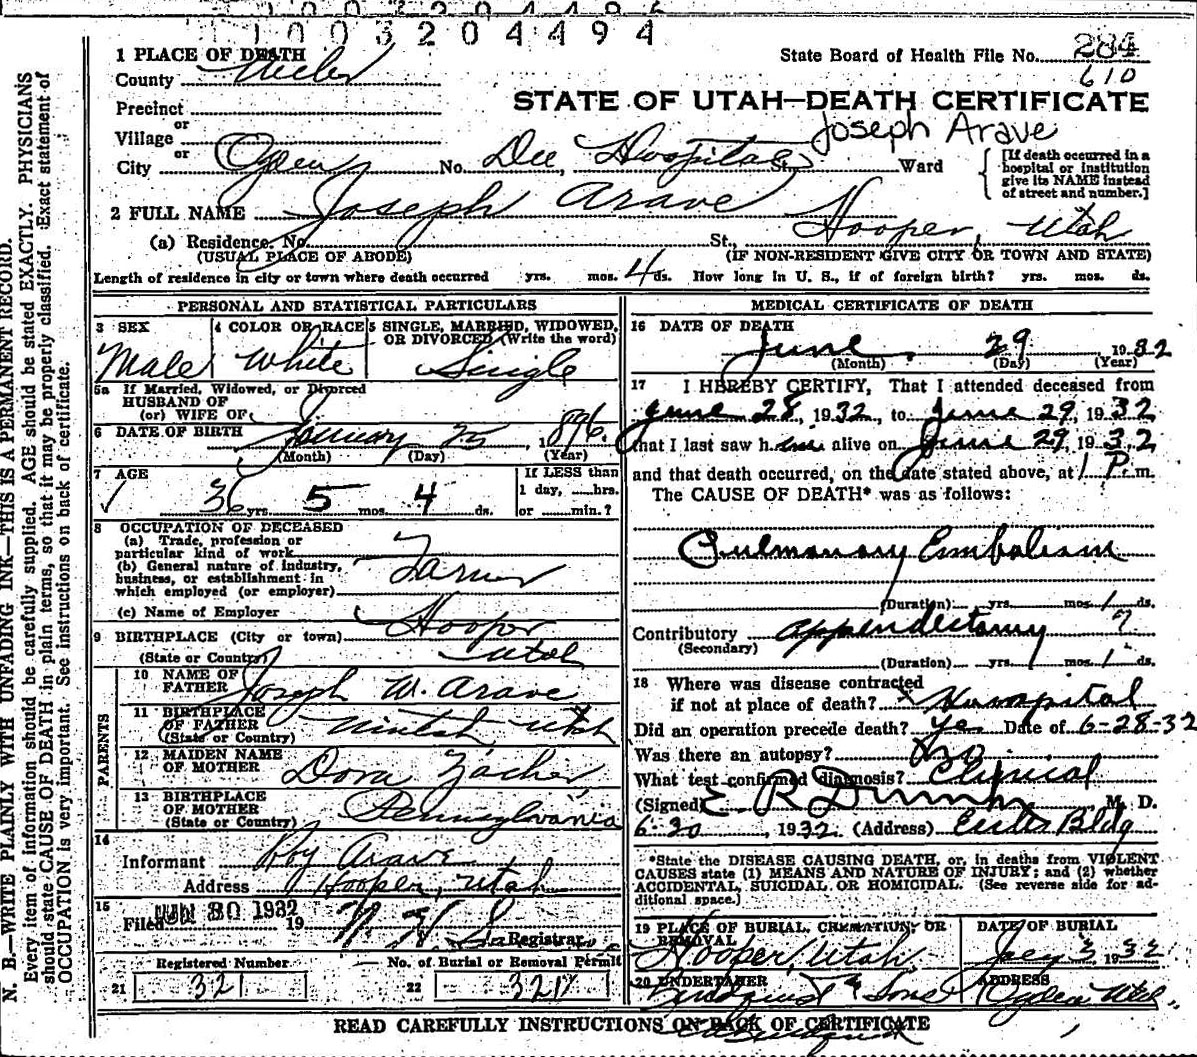 1003204494
1 PLACE OF DEATH
State Board of Health File No. 284
County Weber
610
Precinct
STATE OF UTAH—DEATH CERTIFICATE
or
Village
Joseph Arave
or
City Ogden No. Dee Hospital St. Ward
[If death occurred in a hospital or institution give its NAME instead of street and number.]
2 FULL NAME Joseph Arave
(a) Residence. No. St., Hooper, Utah
(USUAL PLACE OF ABODE) (IF NON-RESIDENT GIVE CITY OR TOWN AND STATE)
Length of residence in city or town where death occurred yrs. mos. 4 ds. How long in U. S., if of foreign birth? yrs. mos. ds.
PERSONAL AND STATISTICAL PARTICULARS
3 SEX 4 COLOR OR RACE 5 SINGLE, MARRIED, WIDOWED, OR DIVORCED (Write the word)
Male White Single
5a If Married, Widowed, or Divorced
HUSBAND OF
(or) WIFE OF
6 DATE OF BIRTH January 25, 1896
(Month) (Day) (Year)
7 AGE If LESS than
36 yrs. 5 mos. 4 ds. 1 day, hrs.
or min.?
8 OCCUPATION OF DECEASED
(a) Trade, profession or
particular kind of work
(b) General nature of industry,
business, or establishment in
which employed (or employer)
Farmer
(c) Name of Employer
9 BIRTHPLACE (City or town) Hooper
(State or Country) Utah
PARENTS
10 NAME OF
FATHER Joseph W. Arave
11 BIRTHPLACE
OF FATHER
(State or Country) Utah
12 MAIDEN NAME
OF MOTHER Dora
13 BIRTHPLACE
OF MOTHER
(State or Country) Pennsylvania
14
Informant Roy Arave
Address Hooper, Utah
15
Filed JUN 30 1932 19
Registrar
Registered Number No. of Burial or Removal Permit
21 321 22 321
MEDICAL CERTIFICATE OF DEATH
16 DATE OF DEATH
June 29 1932
(Month) (Day) (Year)
17 I HEREBY CERTIFY, That I attended deceased from
June 28, 1932, to June 29, 1932
that I last saw him alive on June 29, 1932
and that death occurred, on the date stated above, at 1 P. m.
The CAUSE OF DEATH* was as follows:
Pulmonary Embolism
(Duration) yrs. mos. 1 ds.
Contributory Appendectomy ?
(Secondary)
(Duration) yrs. mos. 1 ds.
18 Where was disease contracted
if not at place of death? Hospital
Did an operation precede death? Yes Date of 6-28-32
Was there an autopsy? No
What test confirmed diagnosis? Clinical
(Signed) E. R. M. D.
6-30, 1932 (Address) Bldg
*State the DISEASE CAUSING DEATH, or, in deaths from VIOLENT
CAUSES state (1) MEANS AND NATURE OF INJURY; and (2) whether
ACCIDENTAL, SUICIDAL OR HOMICIDAL. (See reverse side for ad-
ditional space.)
19 PLACE OF BURIAL, CREMATION, OR REMOVAL DATE OF BURIAL
Hooper, Utah July 3 1932
20 UNDERTAKER ADDRESS
& Sons Ogden Utah
READ CAREFULLY INSTRUCTIONS ON BACK OF CERTIFICATE
N. B.—WRITE PLAINLY WITH UNFADING INK—THIS IS A PERMANENT RECORD.
Every item of information should be carefully supplied. AGE should be stated EXACTLY. PHYSICIANS
should state CAUSE OF DEATH in plain terms, so that it may be properly classified. Exact statement of
OCCUPATION is very important. See instructions on back of certificate.